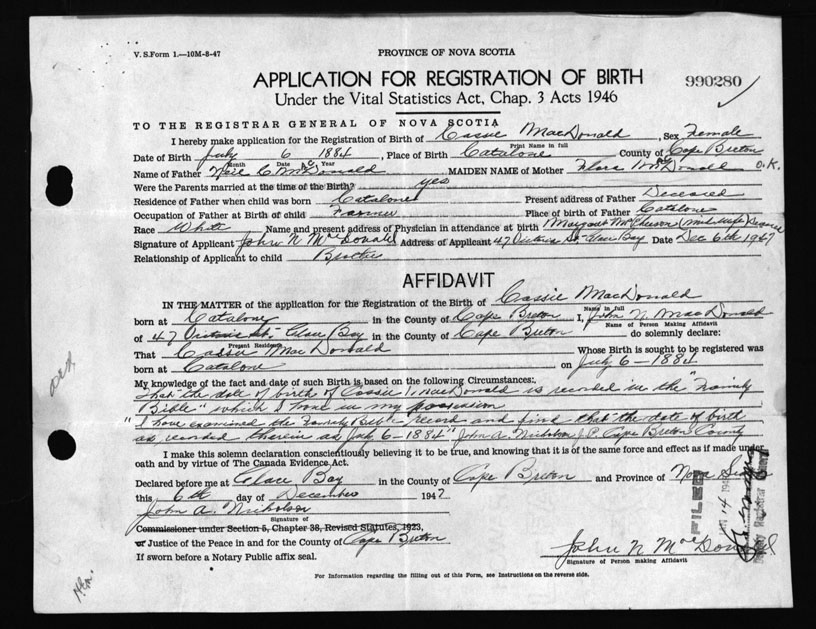 V. S. Form 1.—10M-8-47
PROVINCE OF NOVA SCOTIA
APPLICATION FOR REGISTRATION OF BIRTH
990280
Under the Vital Statistics Act, Chap. 3 Acts 1946
TO THE REGISTRAR GENERAL OF NOVA SCOTIA
I hereby make application for the Registration of Birth of Cassie MacDonald, Sex Female
Print Name in full
Date of Birth July 6 1884, Place of Birth Catalone County of Cape Breton
Month Date Year
Name of Father Neil C McDonald MAIDEN NAME of Mother Flora McDonald O.K.
Were the Parents married at the time of the Birth? yes
Residence of Father when child was born Catalone Present address of Father Deceased
Occupation of Father at Birth of child Farmer Place of birth of Father Catalone
Race White Name and present address of Physician in attendance at birth Margaret McPherson (Mid wife)
Signature of Applicant John N McDonald Address of Applicant 47 St Glace Bay Date Dec 6th 1947
Relationship of Applicant to child Brother
AFFIDAVIT
IN THE MATTER of the application for the Registration of the Birth of Cassie MacDonald
Name in full
born at Catalone in the County of Cape Breton I, John N. MacDonald
Name of Person Making Affidavit
of 47 St. Glace Bay in the County of Cape Breton do solemnly declare:
Present Residence
That Cassie MacDonald Whose Birth is sought to be registered was
born at Catalone on July 6-1884
My knowledge of the fact and date of such Birth is based on the following Circumstances:
that the date of birth of Cassie MacDonald is recorded in the "Family
Bible" which I have in my possession
"I have examined the Family Bible record and find that the date of birth
as recorded therein as July 6-1884" John A. Nicholson J.P. Cape Breton County
I make this solemn declaration conscientiously believing it to be true, and knowing that it is of the same force and effect as if made under
oath and by virtue of The Canada Evidence Act.
Declared before me at Glace Bay in the County of Cape Breton and Province of Nova Scotia
this 6th day of December 1947
John A. Nicholson
Signature of
Commissioner under Section 5, Chapter 38, Revised Statutes, 1923,
or Justice of the Peace in and for the County of Cape Breton
If sworn before a Notary Public affix seal.
John N McDonald
Signature of Person making Affidavit
For Information regarding the filling out of this Form, see Instructions on the reverse side.
FILED